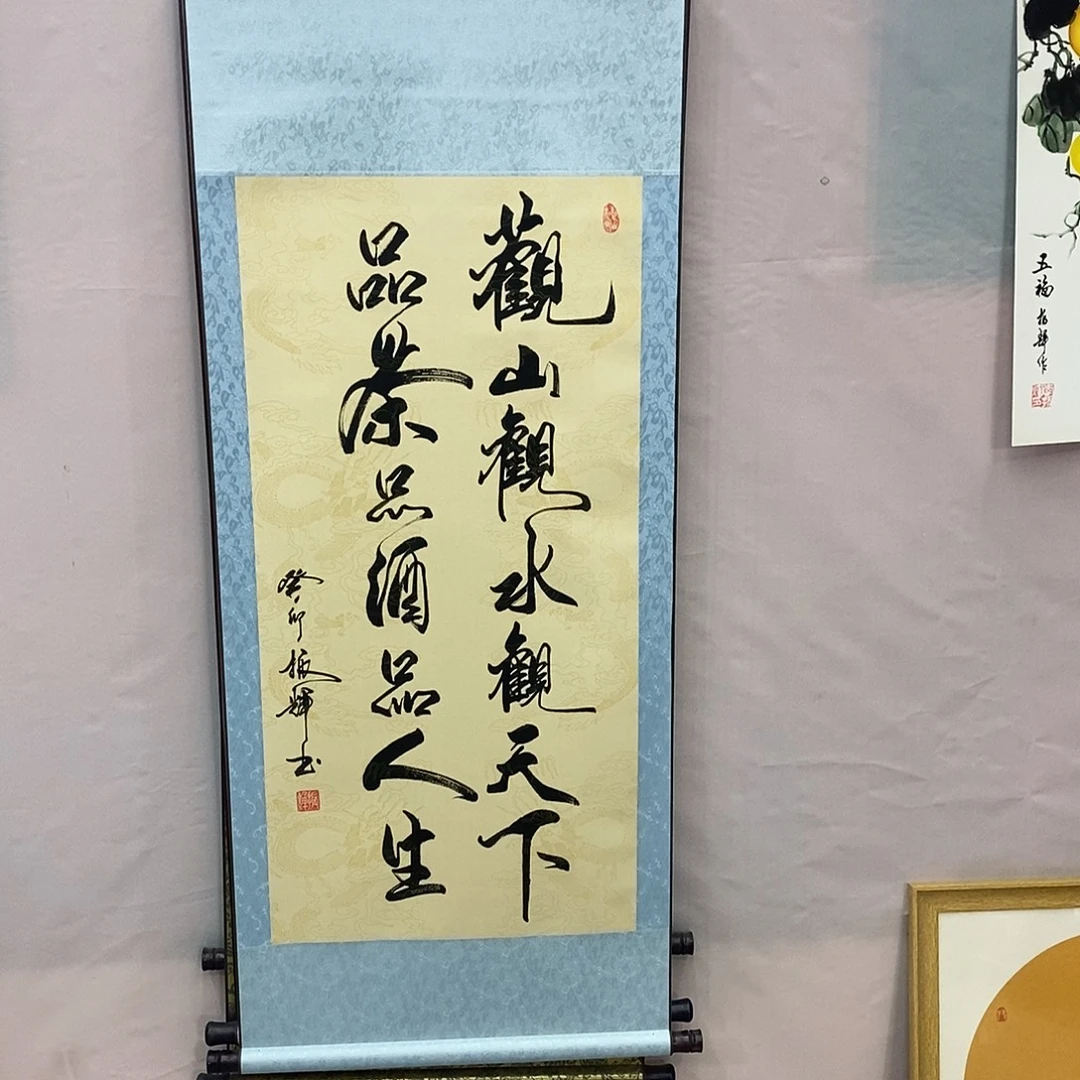 觀山觀水觀天下
品茶品品酒品人生
癸卯振輝书
五福 振輝作